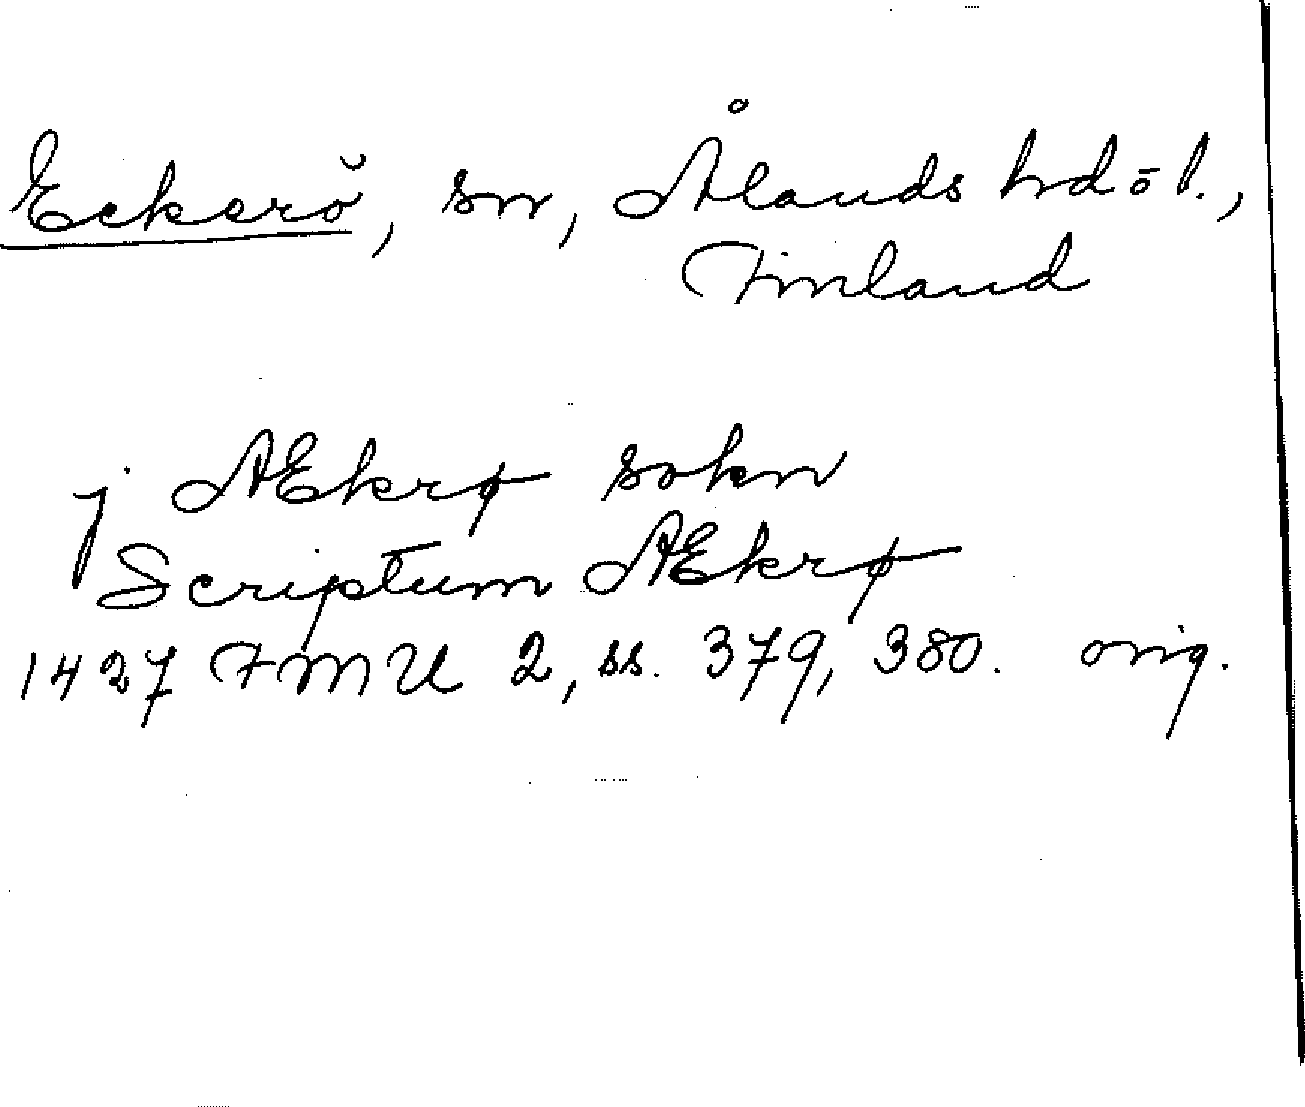 Eckerö, sn, Ålands hd o l.,
Finland
j AEkrø sokn
Scriptum AEkrø
1427 FMU 2, ss. 379, 380. orig.